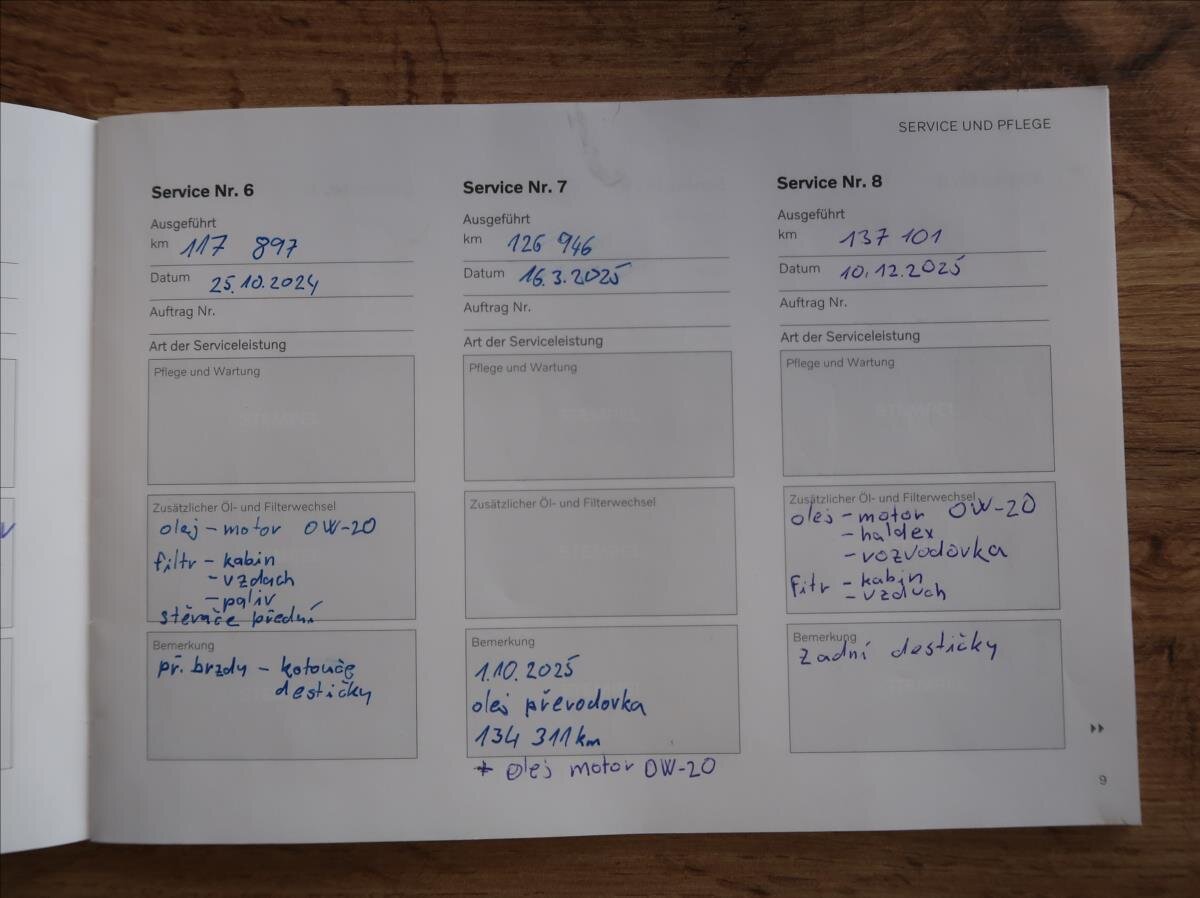 SERVICE UND PFLEGE
Service Nr. 6
Ausgeführt
km 117 897
Datum 25.10.2024
Auftrag Nr.
Art der Serviceleistung
Pflege und Wartung
STEMPEL
Zusätzlicher Öl- und Filterwechsel
olej - motor 0W-20
filtr - kabin
- vzduch
- paliv
stěrače přední
Bemerkung
př. brzdy - kotouče
destičky
Service Nr. 7
Ausgeführt
km 126 946
Datum 16.3.2025
Auftrag Nr.
Art der Serviceleistung
Pflege und Wartung
STEMPEL
Zusätzlicher Öl- und Filterwechsel
STEMPEL
Bemerkung
1.10.2025
olej převodovka
134 311 km
+ olej motor 0W-20
Service Nr. 8
Ausgeführt
km 137 101
Datum 10.12.2025
Auftrag Nr.
Art der Serviceleistung
Pflege und Wartung
STEMPEL
Zusätzlicher Öl- und Filterwechsel
olej - motor 0W-20
- haldex
- rozvodovka
Fitr - kabin
- vzduch
Bemerkung
zadní destičky
9